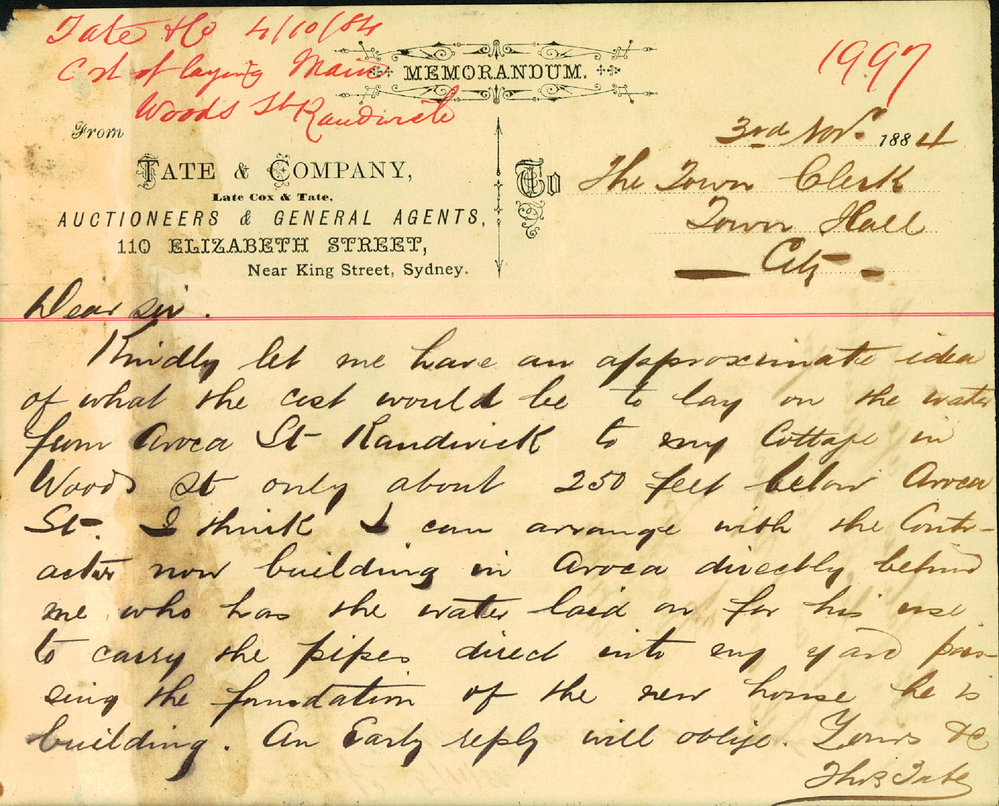 Tate & Co 4/10/84
Cost of laying Main
Woods St Randwick
1997
MEMORANDUM.
From
TATE & COMPANY,
Late Cox & Tate,
AUCTIONEERS & GENERAL AGENTS,
110 ELIZABETH STREET,
Near King Street, Sydney.
3rd Nov. 1884
To The Town Clerk
Town Hall
City
Dear Sir.
Kindly let me have an approximate idea
of what the cost would be to lay on the water
from Avoca St Randwick to my Cottage in
Woods St only about 250 feet below Avoca
St. I think I can arrange with the Contr-
actor now building in Avoca directly behind
me who has the water laid on for his use
to carry the pipes direct into my yard pas-
sing the foundation of the new house he is
building. An Early reply will oblige. Yours &c
Thos Tate